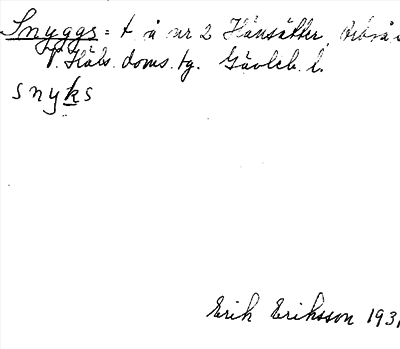 Snyggs = t. å nr 2 Hänsätter, Arbrå
V. Häls. doms. tg. Gävleb. l.
snyks
Erik Eriksson 1931